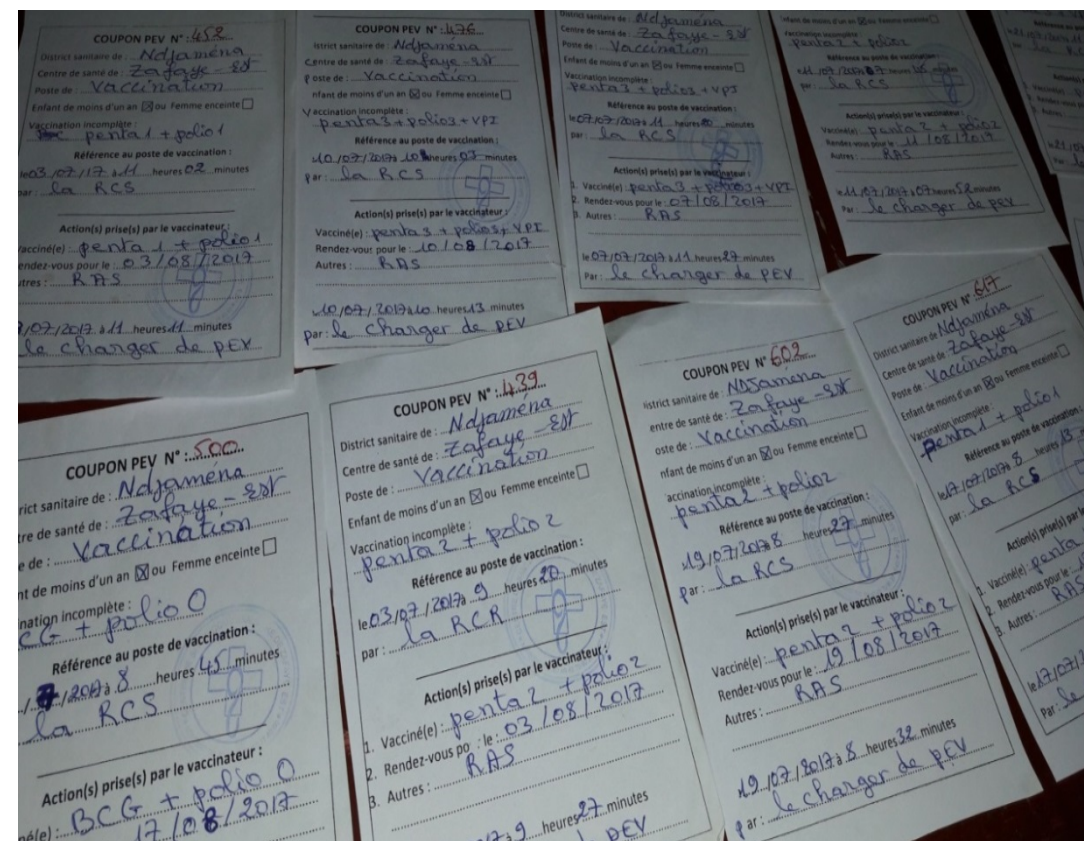 COUPON PEV N° : 452
District sanitaire de : Ndjaména
Centre de santé de : Zafaye - Est
Poste de : Vaccination
Enfant de moins d'un an ☒ ou Femme enceinte ☐
Vaccination incomplète :
penta 1 + polio 1
Référence au poste de vaccination :
le 03/07/17 à 11 heures 02 minutes
par : la RCS
Action(s) prise(s) par le vaccinateur :
Vacciné(e) : penta 1 + polio 1
endez-vous pour le : 03/08/2017
utres : RAS
/07/2017 à 11 heures 11 minutes
le changer de PEV
COUPON PEV N° : 476
istrict sanitaire de : Ndjamena
Centre de santé de : Zafaye - Est
Poste de : Vaccination
nfant de moins d'un an ☒ ou Femme enceinte ☐
Vaccination incomplète :
penta 3 + polio 3 + VPI
Référence au poste de vaccination :
10/07/2017 à 10 heures 03 minutes
par : la RCS
Action(s) prise(s) par le vaccinateur :
Vacciné(e) : penta 3 + polio 3 + VPI
Rendez-vous pour le : 10/08/2017
Autres : RAS
10/07/2017 à 10 heures 13 minutes
par : le changer de PEV
District sanitaire de : Ndjamena
Centre de santé de : Zafaye - Est
Poste de : Vaccination
Enfant de moins d'un an ☒ ou Femme enceinte ☐
Vaccination incomplète :
penta 3 + polio 3 + VPI
Référence au poste de vaccination :
le 07/07/2017 à 11 heures minutes
par : la RCS
Action(s) prise(s) par le vaccinateur :
1. Vacciné(e) : penta 3 + polio 3 + VPI
2. Rendez-vous pour le : 07/08/2017
3. Autres : RAS
le 07/07/2017 à 11 heures 27 minutes
Par : le changer de PEV
nfant de moins d'un an ☒ ou Femme enceinte ☐
Vaccination incomplète :
penta 2 + polio 2
11/07/2017 heures minutes
par : la RCS
Action(s) prise(s) par le vaccinateur :
Vacciné(e) : penta 2 + polio 2
Rendez-vous pour le : 11/08/2017
Autres : RAS
11/07/2017 à 07 heures 52 minutes
Par : le changer de PEV
COUPON PEV N° : 500
rict sanitaire de : Ndjaména
tre de santé de : Zafaye - Est
e de : Vaccination
nt de moins d'un an ☒ ou Femme enceinte ☐
nation incomplète :
CG + polio 0
Référence au poste de vaccination :
/7/2017 à 8 heures 45 minutes
la RCS
Action(s) prise(s) par le vaccinateur :
né(e) : BCG + polio 0
17/08/2017
COUPON PEV N° : 439
District sanitaire de : Ndjaména
Centre de santé de : Zafaye - Est
Poste de : Vaccination
Enfant de moins d'un an ☒ ou Femme enceinte ☐
Vaccination incomplète :
penta 2 + polio 2
Référence au poste de vaccination :
le 03/07/2017 à 9 heures 20 minutes
par : la RCR
Action(s) prise(s) par le vaccinateur :
1. Vacciné(e) : penta 2 + polio 2
2. Rendez-vous po le : 03/08/2017
3. Autres : RAS
9 heures 27 minutes
PEV
COUPON PEV N° 602
istrict sanitaire de : NDjamena
entre de santé de : Zafaye - Est
oste de : Vaccination
nfant de moins d'un an ☒ ou Femme enceinte ☐
accination incomplète :
penta 2 + polio 2
Référence au poste de vaccination :
19/07/2017 à 8 heures 27 minutes
par : la RCS
Action(s) prise(s) par le vaccinateur :
Vacciné(e) : penta 2 + polio 2
Rendez-vous pour le : 19/08/2017
Autres : RAS
19/07/2017 à 8 heures 32 minutes
par : le changer de PEV
COUPON PEV N° 617
District sanitaire de Ndjaména
Centre de santé de : Zafaye - Est
Poste de : Vaccination
Enfant de moins d'un an ☒ ou Femme enceinte
Vaccination incomplète :
penta 1 + polio 1
Référence au poste de vaccination
le 17/07/2017 8 heures 13
par : la RCS
Action(s) prise(s) par le
1. Vacciné(e) : penta
2. Rendez-vous pour le :
3. Autres : RAS
le 17/07/2017
Par : le